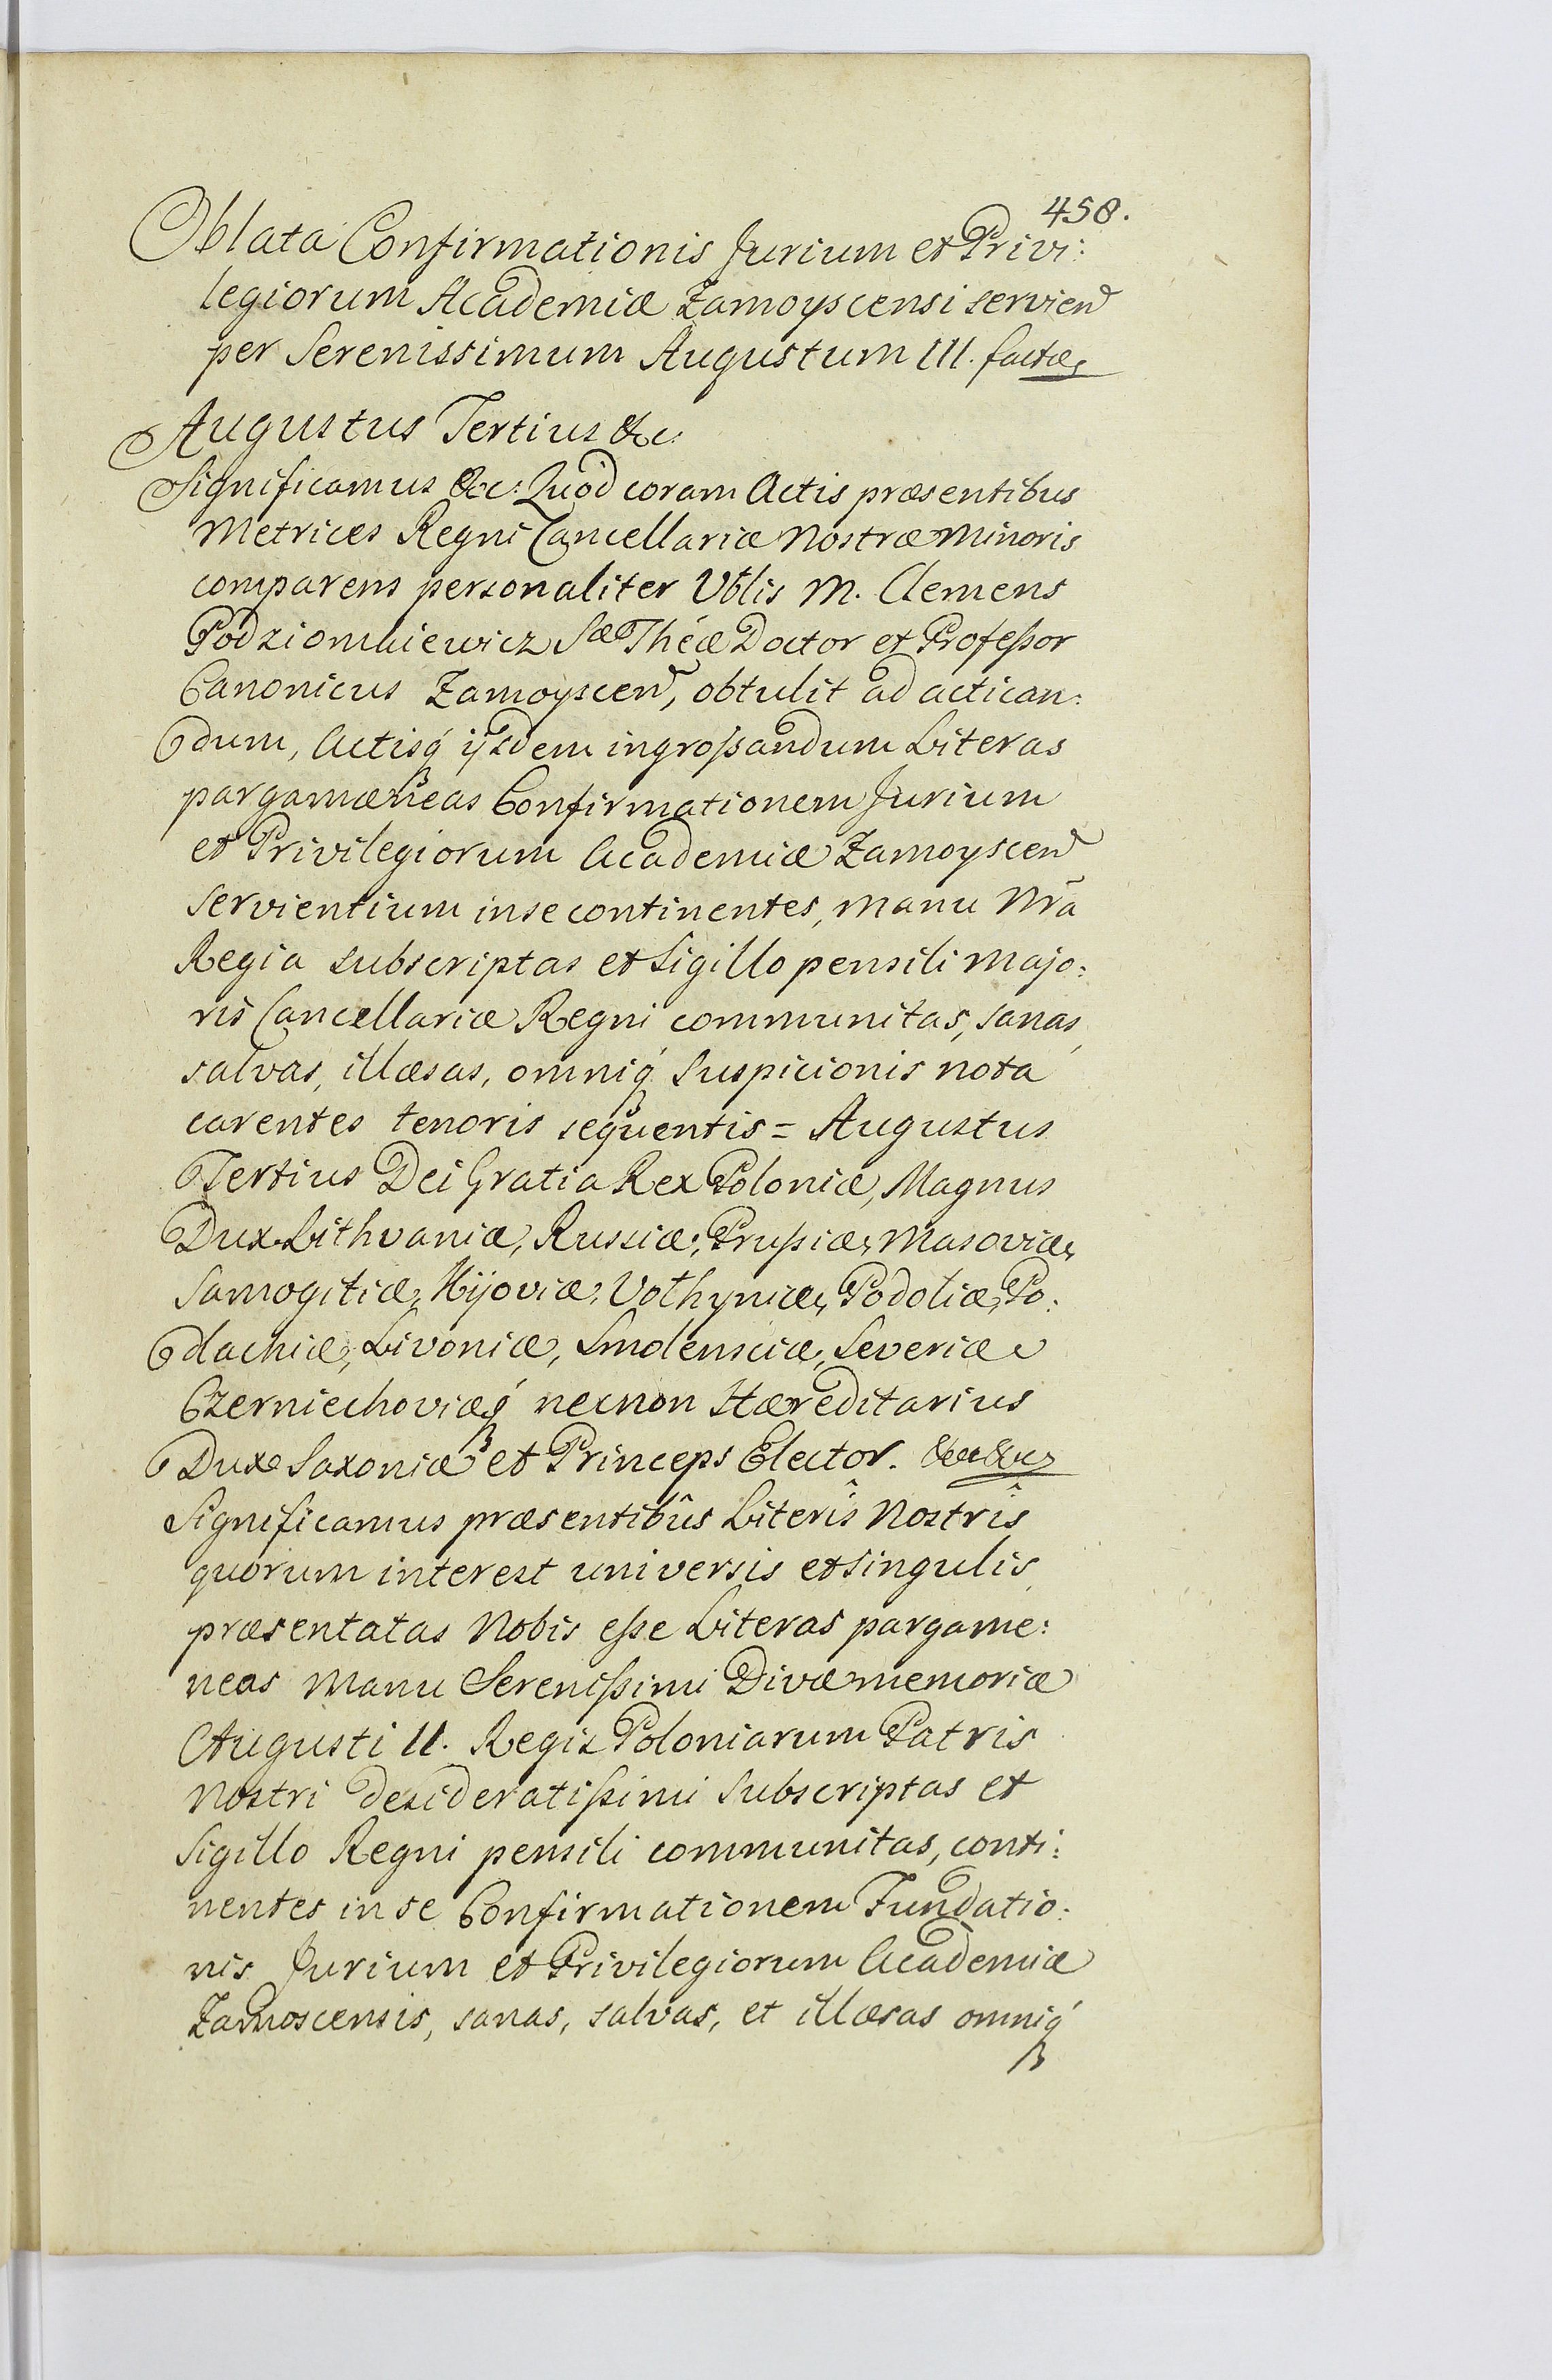 458.
Oblata Confirmationis Jurium et Privi:
legiorum Academiæ Zamoyscensi servien̄
per Serenissimum Augustum III. factæ
Augustus Tertius &c:
Significamus &c: Quod coram Actis præsentibus
Metrices Regni Cancellariæ Nostræ Minoris
comparens personaliter Vblis M. Clemens
Podziomkiewicz Sæ Théæ Doctor et Profeſsor
Canonicus Zamoyscen̄, obtulit ad actican:
dum, Actisq́ ijsdem ingroſsandum Literas
pargamæneas Confirmationem Jurium
et Privilegiorum Academiæ Zamoyscen̄
servientium in se continentes, manu Nr̄a
Regia subscriptas et Sigillo pensili Majo:
ris Cancellariæ Regni communitas, sanas,
salvas, illæsas, omniq́ Suspicionis nota
carentes tenoris sequentis = Augustus
Tertius Dei Gratia Rex Poloniæ, Magnus
Dux Lithvaniæ, Russiæ, Pruſsiæ, Masoviæ,
Samogitiæ, Kijoviæ, Volhyniæ, Podoliæ, Po:
dlachiæ, Livoniæ, Smolensciæ, Severiæ
Czerniechoviæq́ necnon Hæreditarius
Dux Saxoniæ et Princeps Elector. &c &c
Significamus præsentibûs Literîs Nostrîs
quorum interest universis et singulis
præsentatas Nobis eſse Literas pargame:
neas Manu Sereniſsimi Divæ memoriæ
Augusti II. Regis Poloniarum Patris
Nostri desideratiſsimi Subscriptas et
Sigillo Regni pensili communitas, conti:
nentes in se Confirmationem Fundatio:
nis Jurium et Privilegiorum Academiæ
Zamoscensis, sanas, salvas, et illæsas omniq́